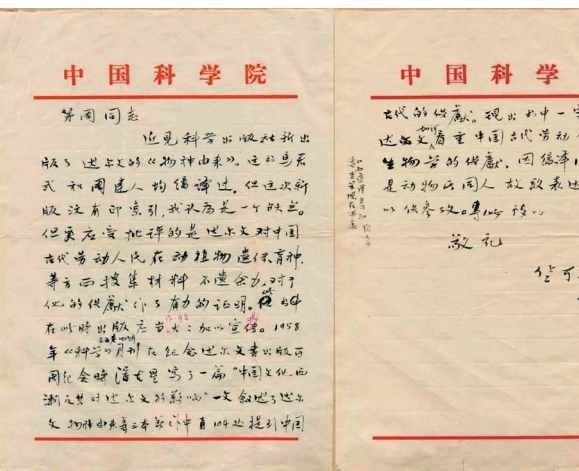 中国科学院
同志
近见科学出版社新出
版了达尔文的《物种由来》。这书马君
武和周建人均翻译过，但这次新
版没有印索引，我认为是一个缺点。
但更应受批评的是达尔文对中国
古代劳动人民在动植物遗传育种
等方面搜集材料不遗余力，对于
他的供献作了有力的证明。书中
在此时出版应当加以宣传。1958
年《科学》月刊在纪念达尔文书出版百
周年纪念时潘吉星写了一篇"中国文化西
渐及其对达尔文的影响"一文叙述了达尔
文物种由来等三本著作中有104处提到中国
中国科学
古代的供献。现出书中一字
达尔文看重中国古代劳动人
生物学的供献，因翻译
是动物所同人故敢表达
以供参改。专此敬以
敬礼
竺可